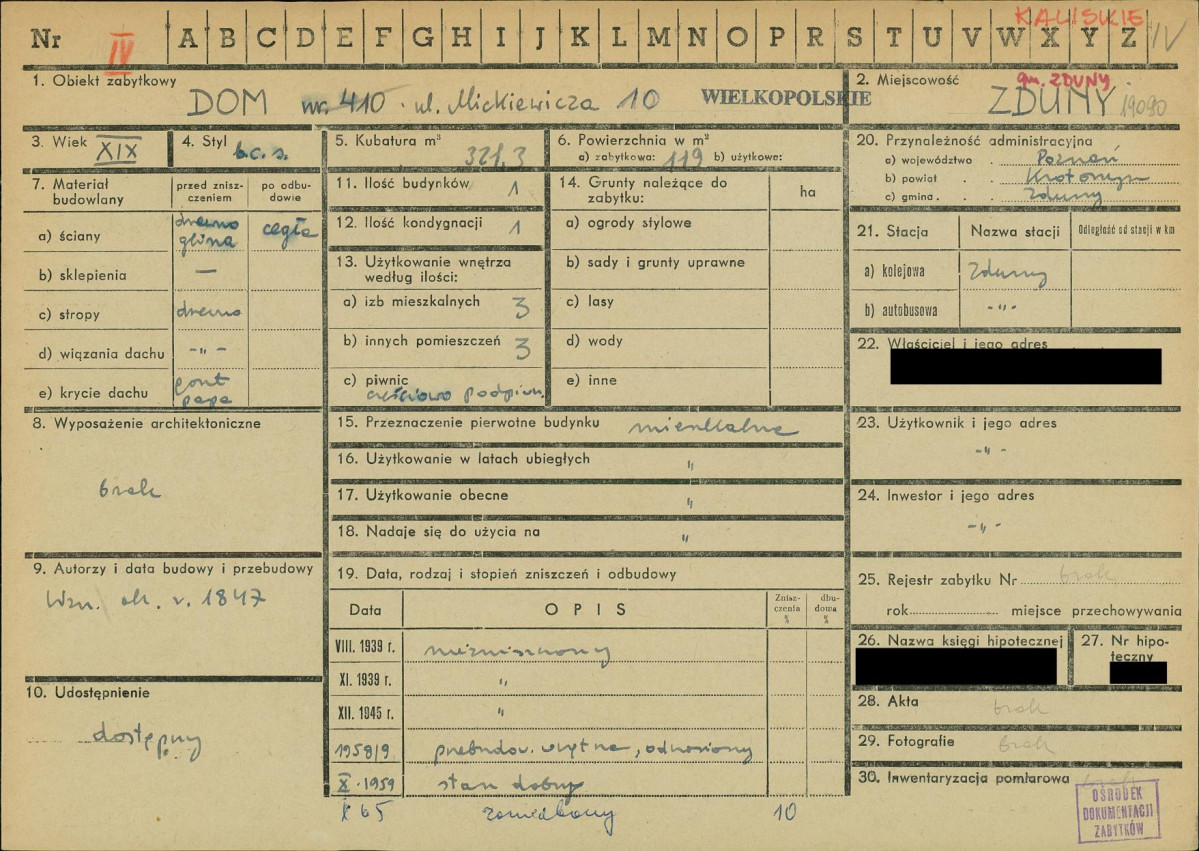 KALISKIE
Nr IV A B C D E F G H I J K L M N O P R S T U V W X Y Z IV
1. Obiekt zabytkowy
DOM nr. 410 · ul. Mickiewicza 10 WIELKOPOLSKIE
2. Miejscowość gm. ZDUNY
ZDUNY 19090
3. Wiek XIX
4. Styl b.c.s.
5. Kubatura m³ 321,3
6. Powierzchnia w m²
a) zabytkowa: 119 b) użytkowe:
7. Materiał budowlany
przed zniszczeniem
po odbudowie
a) ściany drewno glina cegła
b) sklepienia —
c) stropy drewno
d) wiązania dachu -„-
e) krycie dachu gont papa
8. Wyposażenie architektoniczne
brak
9. Autorzy i data budowy i przebudowy
Wzn. ok. r. 1847
10. Udostępnienie
dostępny
11. Ilość budynków 1
12. Ilość kondygnacji 1
13. Użytkowanie wnętrza według ilości:
a) izb mieszkalnych 3
b) innych pomieszczeń 3
c) piwnic
częściowo podpiwn.
14. Grunty należące do zabytku:
ha
a) ogrody stylowe
b) sady i grunty uprawne
c) lasy
d) wody
e) inne
15. Przeznaczenie pierwotne budynku mieszkalne
16. Użytkowanie w latach ubiegłych „
17. Użytkowanie obecne „
18. Nadaje się do użycia na „
19. Data, rodzaj i stopień zniszczeń i odbudowy
Data OPIS Zniszczenia % dbudowa %
VIII. 1939 r. niezniszczony
XI. 1939 r. „
XII. 1945 r. „
1958/9 przebudow. wnętrze, odnowiony
X · 1959 stan dobry
X 65 zaniedbany 10
20. Przynależność administracyjna
a) województwo . Poznań
b) powiat . . Krotoszyn
c) gmina . . Zduny
21. Stacja Nazwa stacji Odległość od stacji w km
a) kolejowa Zduny
b) autobusowa -„-
22. Właściciel i jego adres
23. Użytkownik i jego adres
-„-
24. Inwestor i jego adres
-„-
25. Rejestr zabytku Nr brak
rok miejsce przechowywania
26. Nazwa księgi hipotecznej
27. Nr hipoteczny
28. Akta brak
29. Fotografie brak
30. Inwentaryzacja pomiarowa brak
OŚRODEK
DOKUMENTACJI
ZABYTKÓW